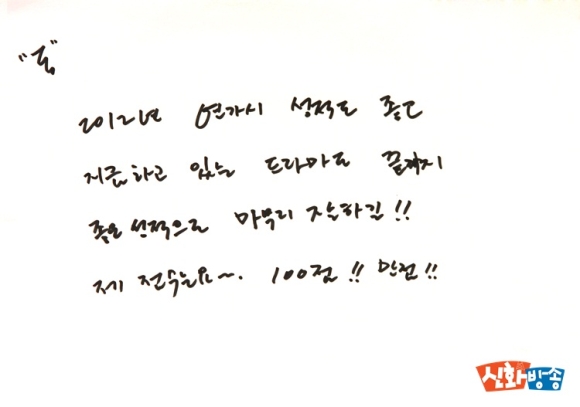 2012년 연가시 성적도 좋고
지금하고 있는 드라마도 끝까지
좋은 성적으로 마무리 잘하길!!
제 점수는요~. 100점!! 만점!!
신화방송